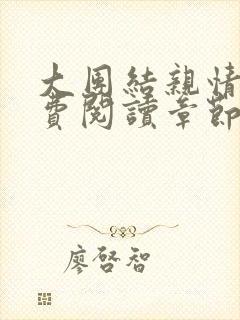 大団結親情
費閱讀章節
廖啓智